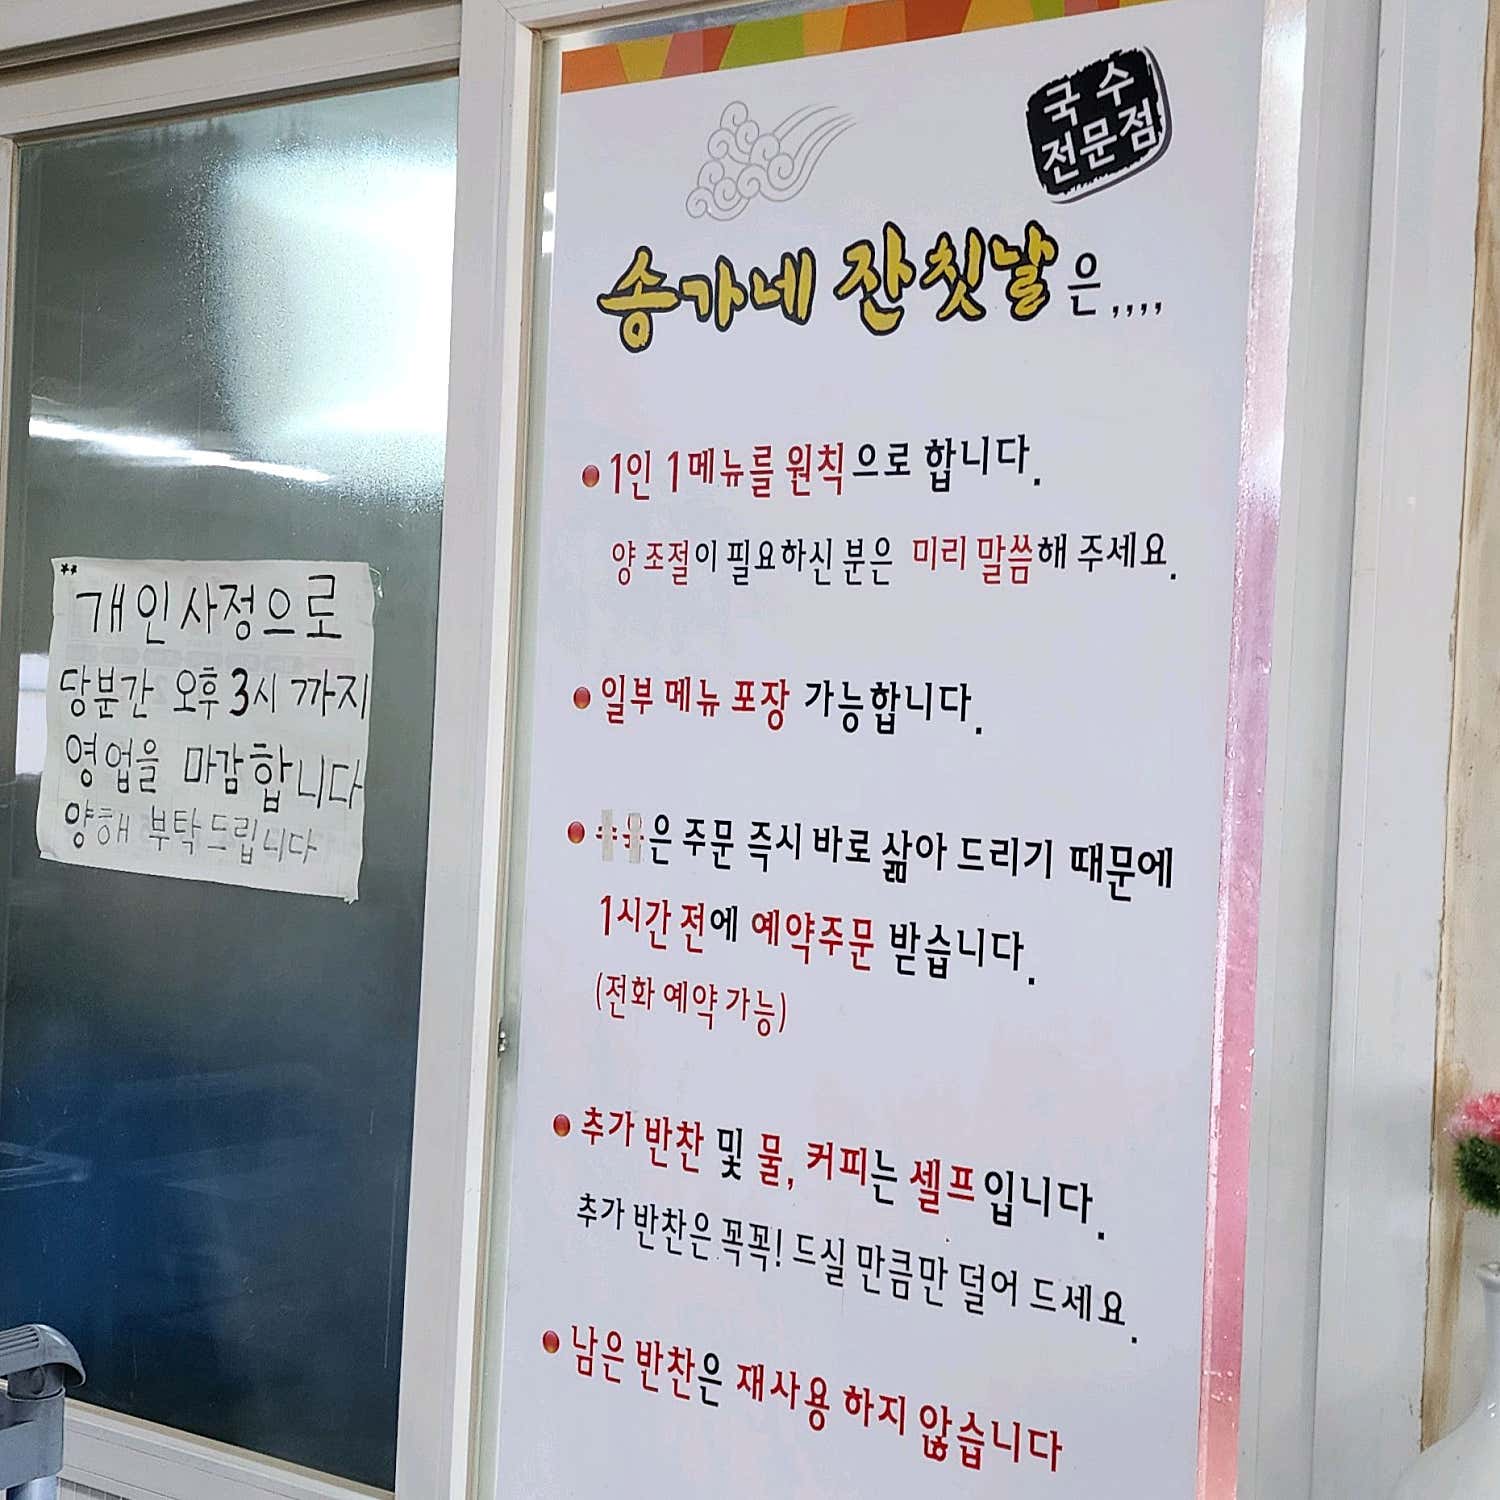 개인사정으로
당분간 오후 3시 까지
영업을 마감합니다
양해 부탁드립니다
국수
전문점
송가네 잔칫날은,,,,
1인 1메뉴를 원칙으로 합니다.
양 조절이 필요하신 분은 미리 말씀해 주세요.
일부 메뉴 포장 가능합니다.
은 주문 즉시 바로 삶아 드리기 때문에
1시간 전에 예약주문 받습니다.
(전화 예약 가능)
추가 반찬 및 물, 커피는 셀프입니다.
추가 반찬은 꼭꼭! 드실 만큼만 덜어 드세요.
남은 반찬은 재사용 하지 않습니다